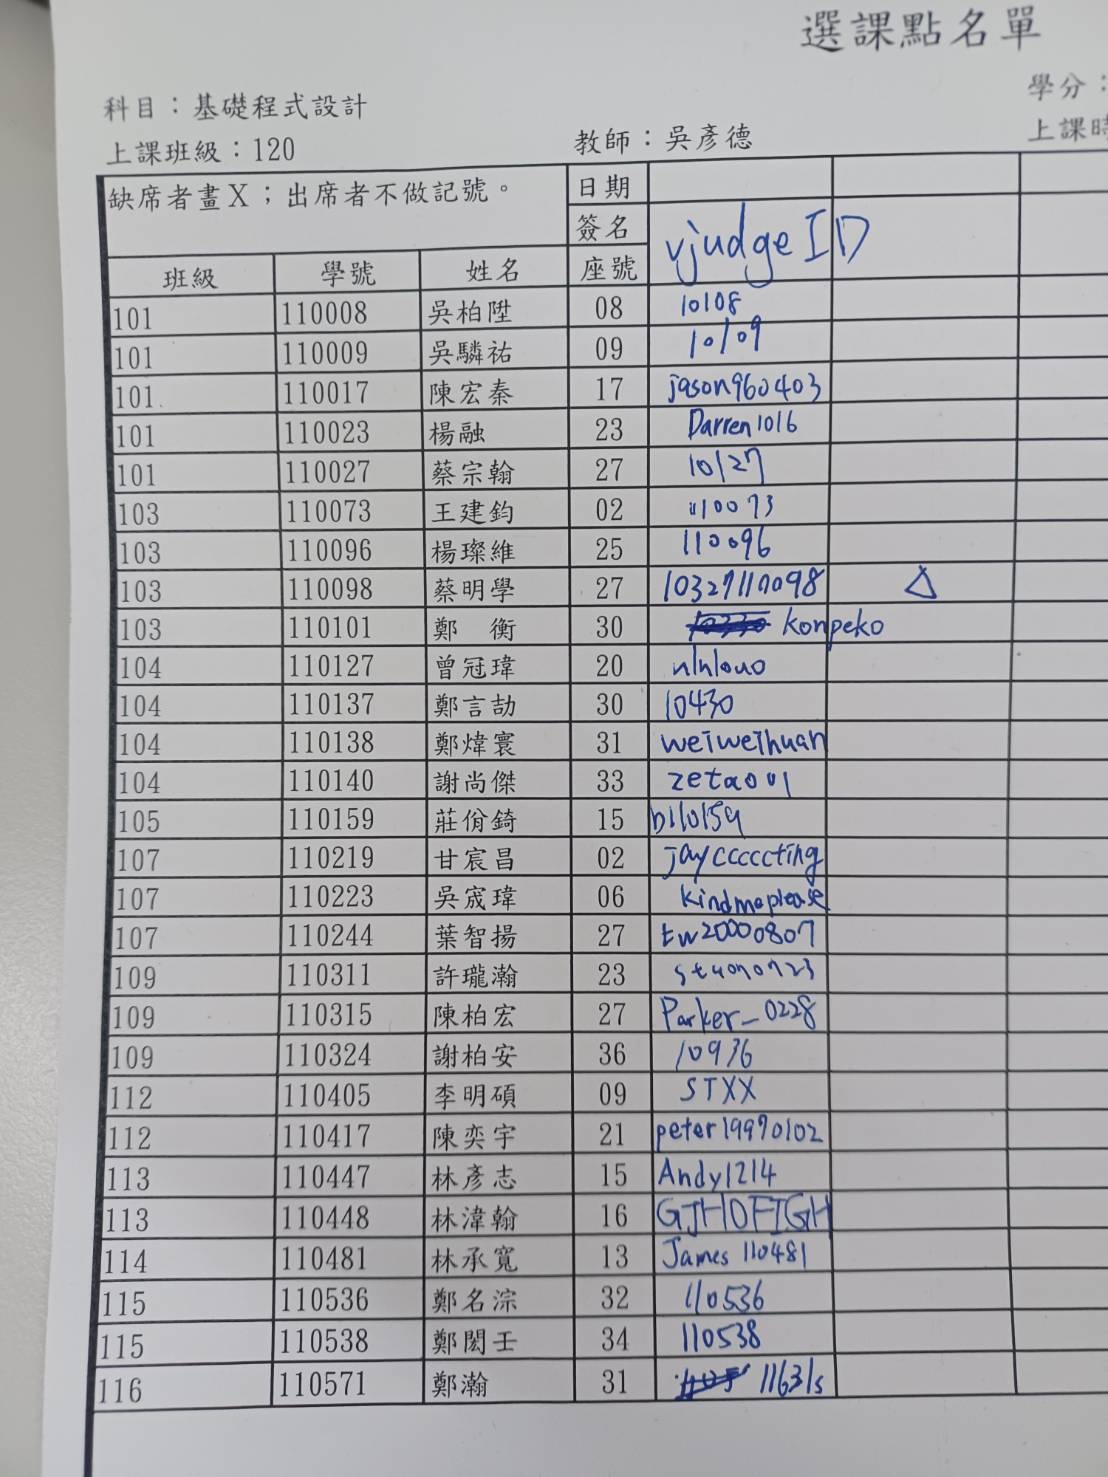 選課點名單
科目：基礎程式設計
學分：
上課班級：120
教師：吳彥德
上課時
缺席者畫X；出席者不做記號。
日期
簽名 vjudge ID
班級 學號 姓名 座號
101 110008 吳柏陞 08 10108
101 110009 吳驎祐 09 10109
101 110017 陳宏秦 17 jason960403
101 110023 楊融 23 Darren1016
101 110027 蔡宗翰 27 10127
103 110073 王建鈞 02 110073
103 110096 楊璨維 25 110096
103 110098 蔡明學 27 10327110098 △
103 110101 鄭 衡 30 konpeko
104 110127 曾冠瑋 20
104 110137 鄭言劼 30 10430
104 110138 鄭煒寰 31 weiweihuan
104 110140 謝尚傑 33 zeta001
105 110159 莊佾錡 15 b110159
107 110219 甘宸昌 02 jaycccccting
107 110223 吳宬瑋 06 kindmeplease
107 110244 葉智揚 27 tw20000807
109 110311 許瓏瀚 23
109 110315 陳柏宏 27 Parker_0228
109 110324 謝柏安 36 10936
112 110405 李明碩 09 STXX
112 110417 陳奕宇 21 peter19970102
113 110447 林彥志 15 Andy1214
113 110448 林湋翰 16 GJHDFIGH
114 110481 林承寬 13 James110481
115 110536 鄭名淙 32 110536
115 110538 鄭閎壬 34 110538
116 110571 鄭瀚 31 11631s